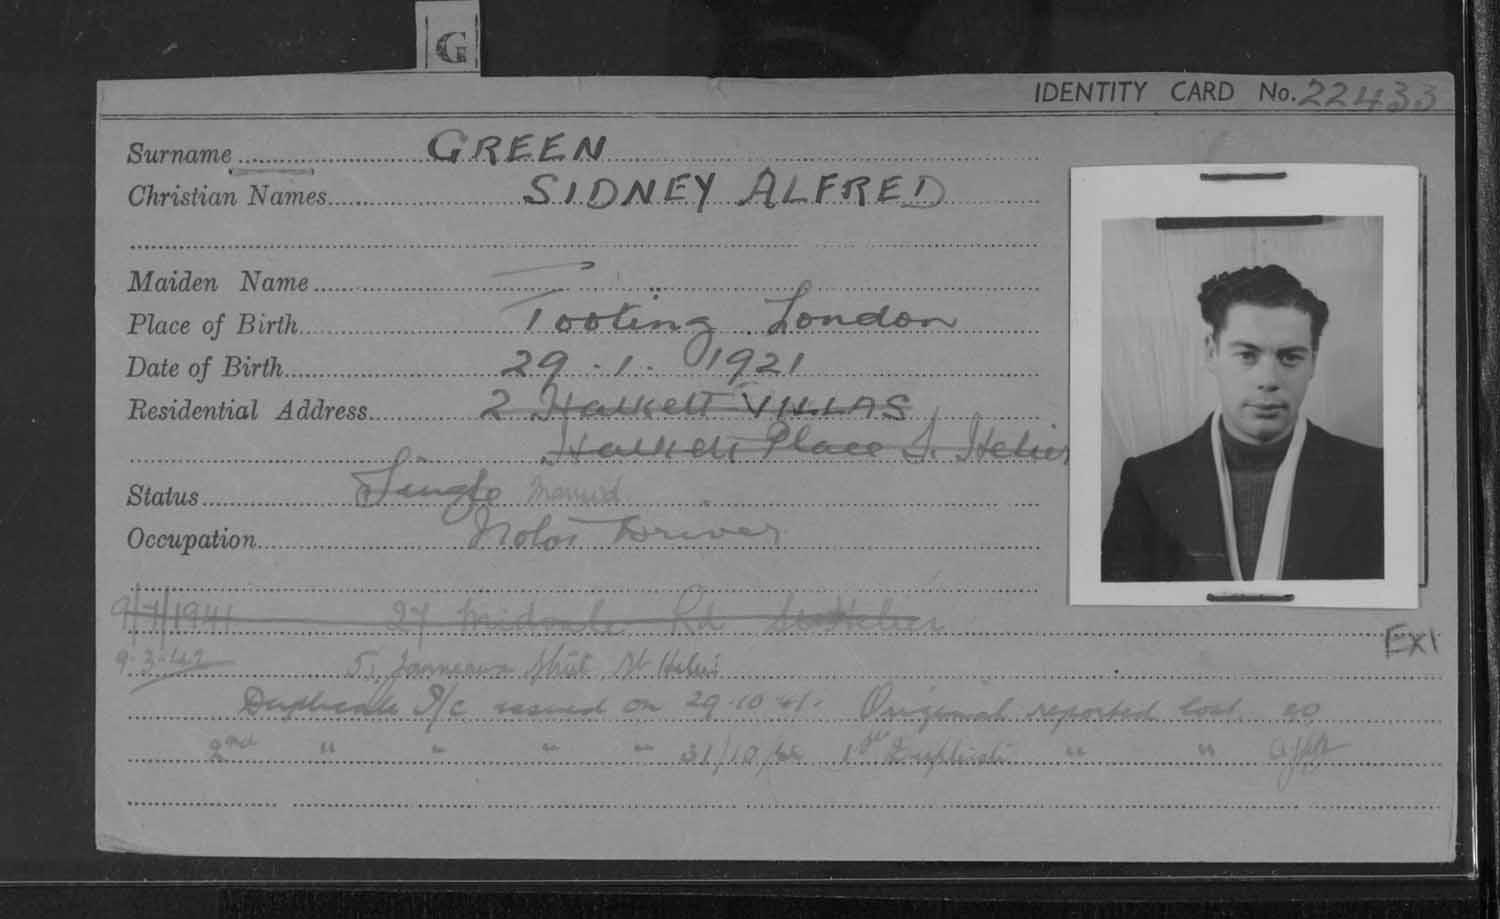 G
IDENTITY CARD No. 22433
Surname GREEN
Christian Names SIDNEY ALFRED
Maiden Name
Place of Birth Tooting London
Date of Birth 29.1.1921
Residential Address 2 Halkett VILLAS
Halkett Place St. Helier
Status Single Married
Occupation Motor Driver
9/7/1941 27 Midvale Rd St Helier
EX1
9-3-42 5, Street, St Helier
Duplicate I/C issued on 29.10.41. Original reported lost.
2nd " " " " 31/10/ 1st Duplicate " "